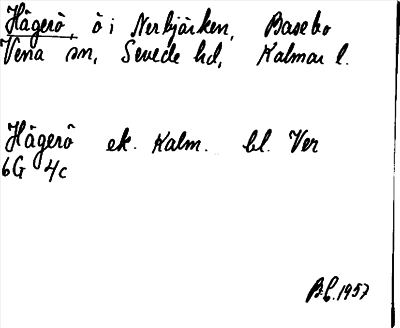 Hägerö, ö i Nerbjärken, Basebo
Vena sn, Sevede hd, Kalmar l.
Hägerö ek. Kalm. bl. Ver
6G 4c
B.L. 1957